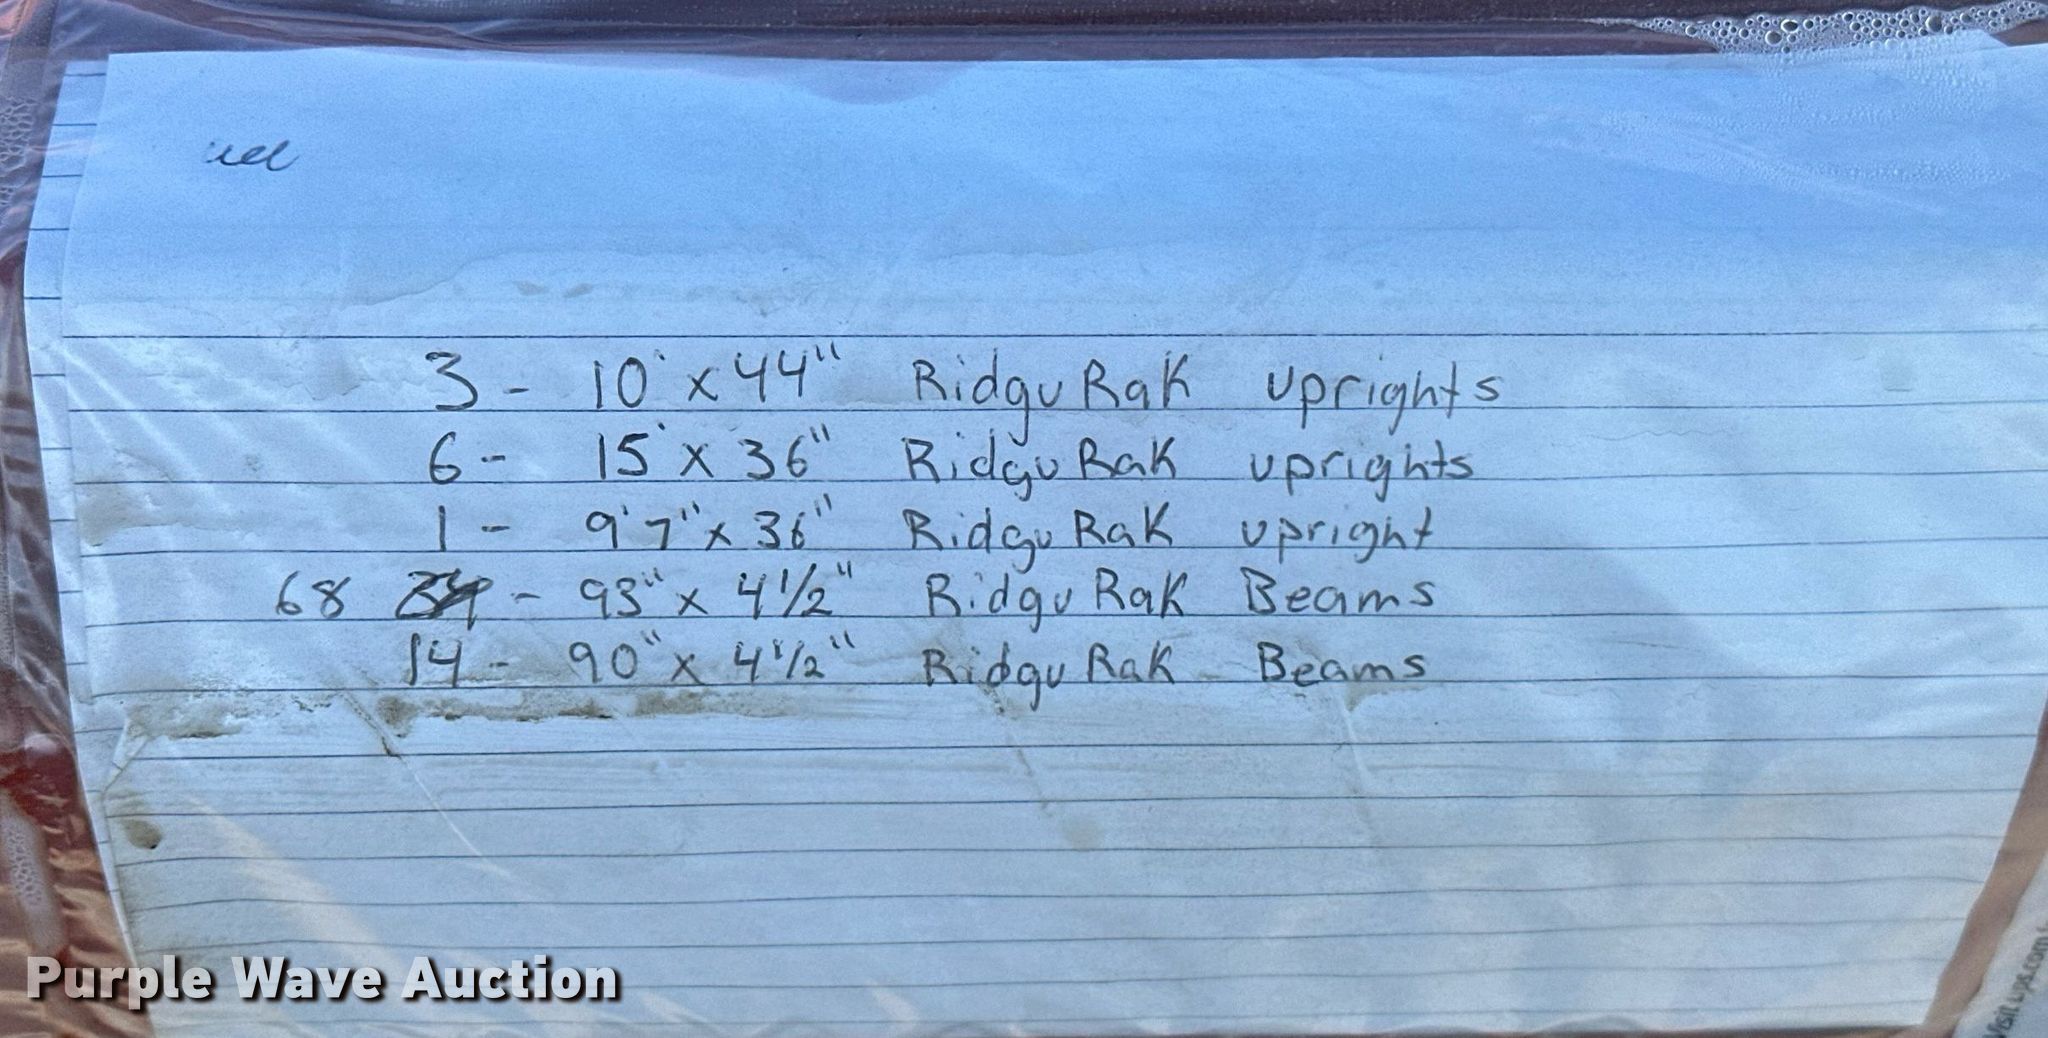 3 - 10' x 44" Ridgu Rak uprights
6 - 15' x 36" Ridgu Rak uprights
1 - 9'7" x 36" Ridgu Rak upright
68 - 93" x 4 1/2" Ridgu Rak Beams
14 - 90" x 4 1/2" Ridgu Rak Beams
Purple Wave Auction
Visit ups.com